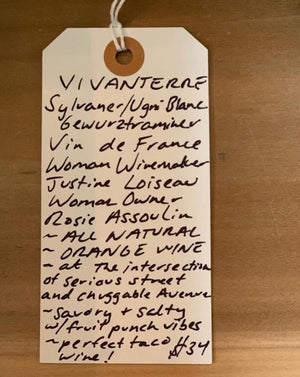 VIVANTERRE
Sylvaner/Ugni Blanc
Gewurztraminer
Vin de France
Woman Winemaker
Justine Loiseau
Woman Owner
Rosie Assoulin
~ ALL NATURAL
~ ORANGE WINE
~ at the intersection
of serious street
and chuggable Avenue
~ savory + salty
w/ fruit punch vibes
~ perfect taco
wine! $34